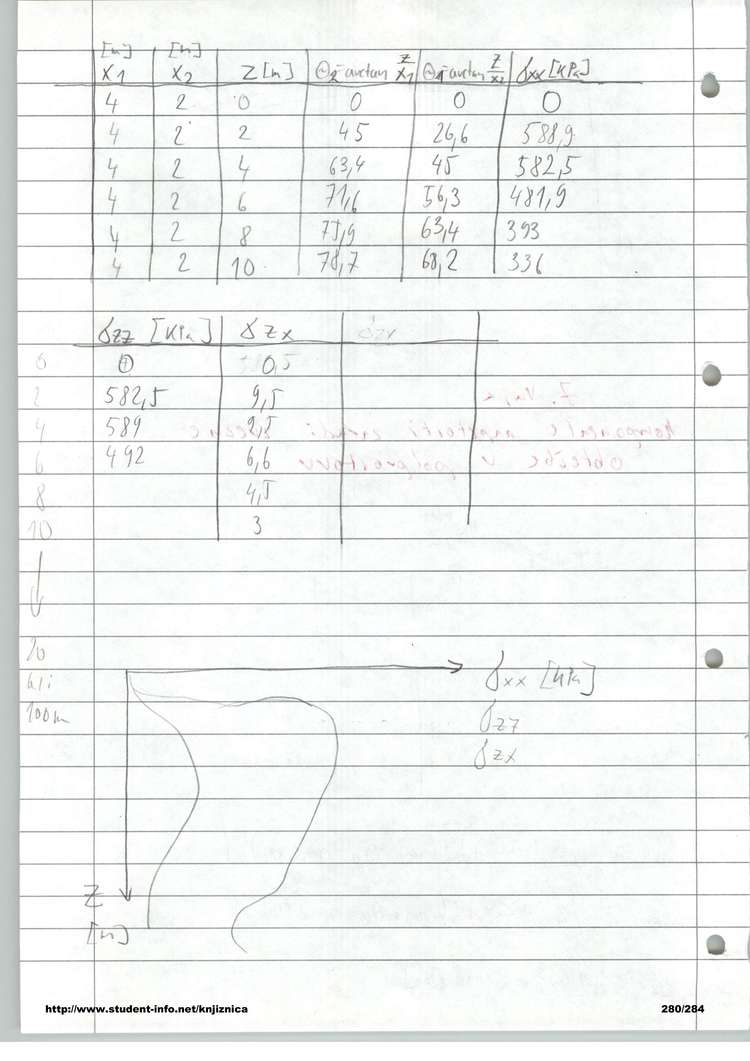 [m] [m]
x1 x2 z [m] Θ2=arctan z/x1 Θ1=arctan z/x2 σxx [kPa]
4 2 0 0 0 0
4 2 2 45 26,6 588,9
4 2 4 63,4 45 582,5
4 2 6 71,6 56,3 481,9
4 2 8 75,9 63,4 393
4 2 10 78,7 68,2 336
σzz [kPa] σzx σzx
0 0 0,5
2 582,5 9,5
4 589
6 492 6,6
8 4,5
10 3
20
ali
100m
σxx [kPa]
σzz
σzx
z
[m]
http://www.student-info.net/knjiznica 280/284